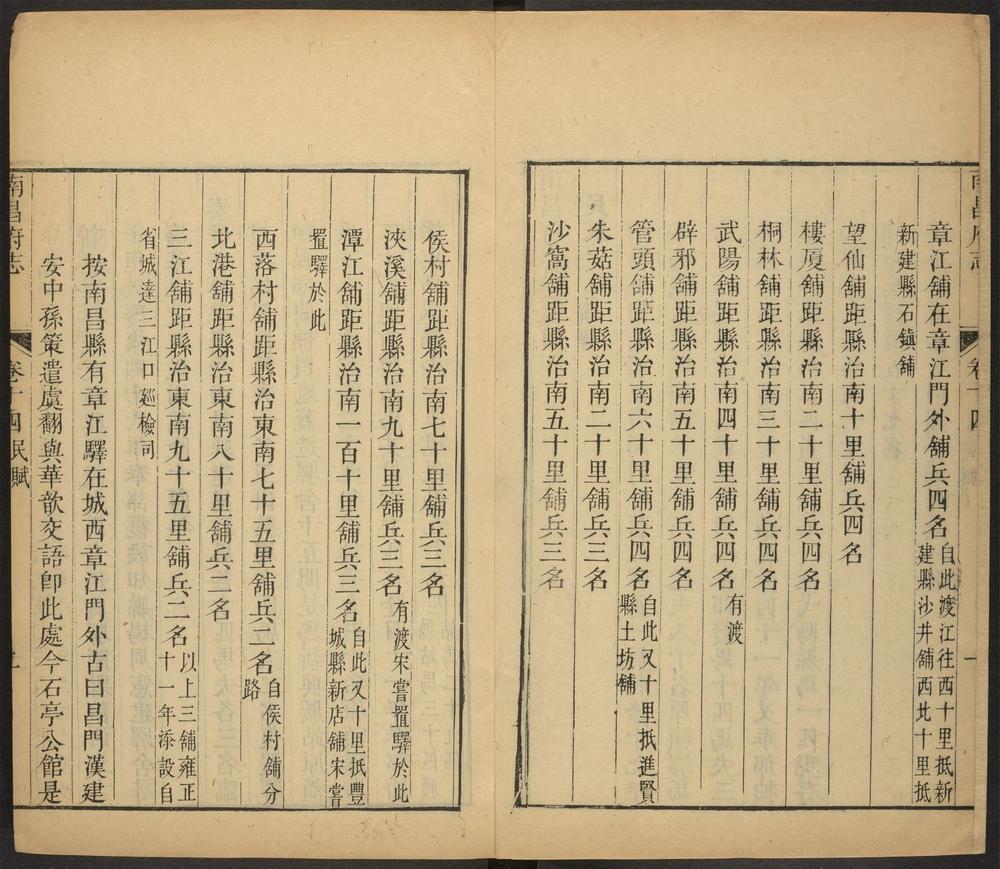 南昌府志
卷十四
一
章江舖在章江門外舖兵四名自此渡江往西十里抵新建縣沙井舖西北十里抵
新建縣石鎭舖
望仙舖距縣治南十里舖兵四名
樓厦舖距縣治南二十里舖兵四名
桐林舖距縣治南三十里舖兵四名
武陽舖距縣治南四十里舖兵四名有渡
辟邪舖距縣治南五十里舖兵四名
管頭舖距縣治南六十里舖兵四名自此又十里抵進賢縣土坊舖
朱菇舖距縣治南二十里舖兵三名
沙窩舖距縣治南五十里舖兵三名
侯村舖距縣治南七十里舖兵三名
浹溪舖距縣治南九十里舖兵三名有渡宋嘗置驛於此
潭江舖距縣治南一百十里舖兵三名自此又十里抵豐城縣新店舖宋嘗
置驛於此
西落村舖距縣治東南七十五里舖兵二名自侯村舖分路
北港舖距縣治東南八十里舖兵二名
三江舖距縣治東南九十五里舖兵二名以上三舖雍正十一年添設自
省城達三江口廵檢司
按南昌縣有章江驛在城西章江門外古曰昌門漢建
安中孫策遣虞翻與華歆交語卽此處今石亭公館是
南昌府志
卷十四民賦
二